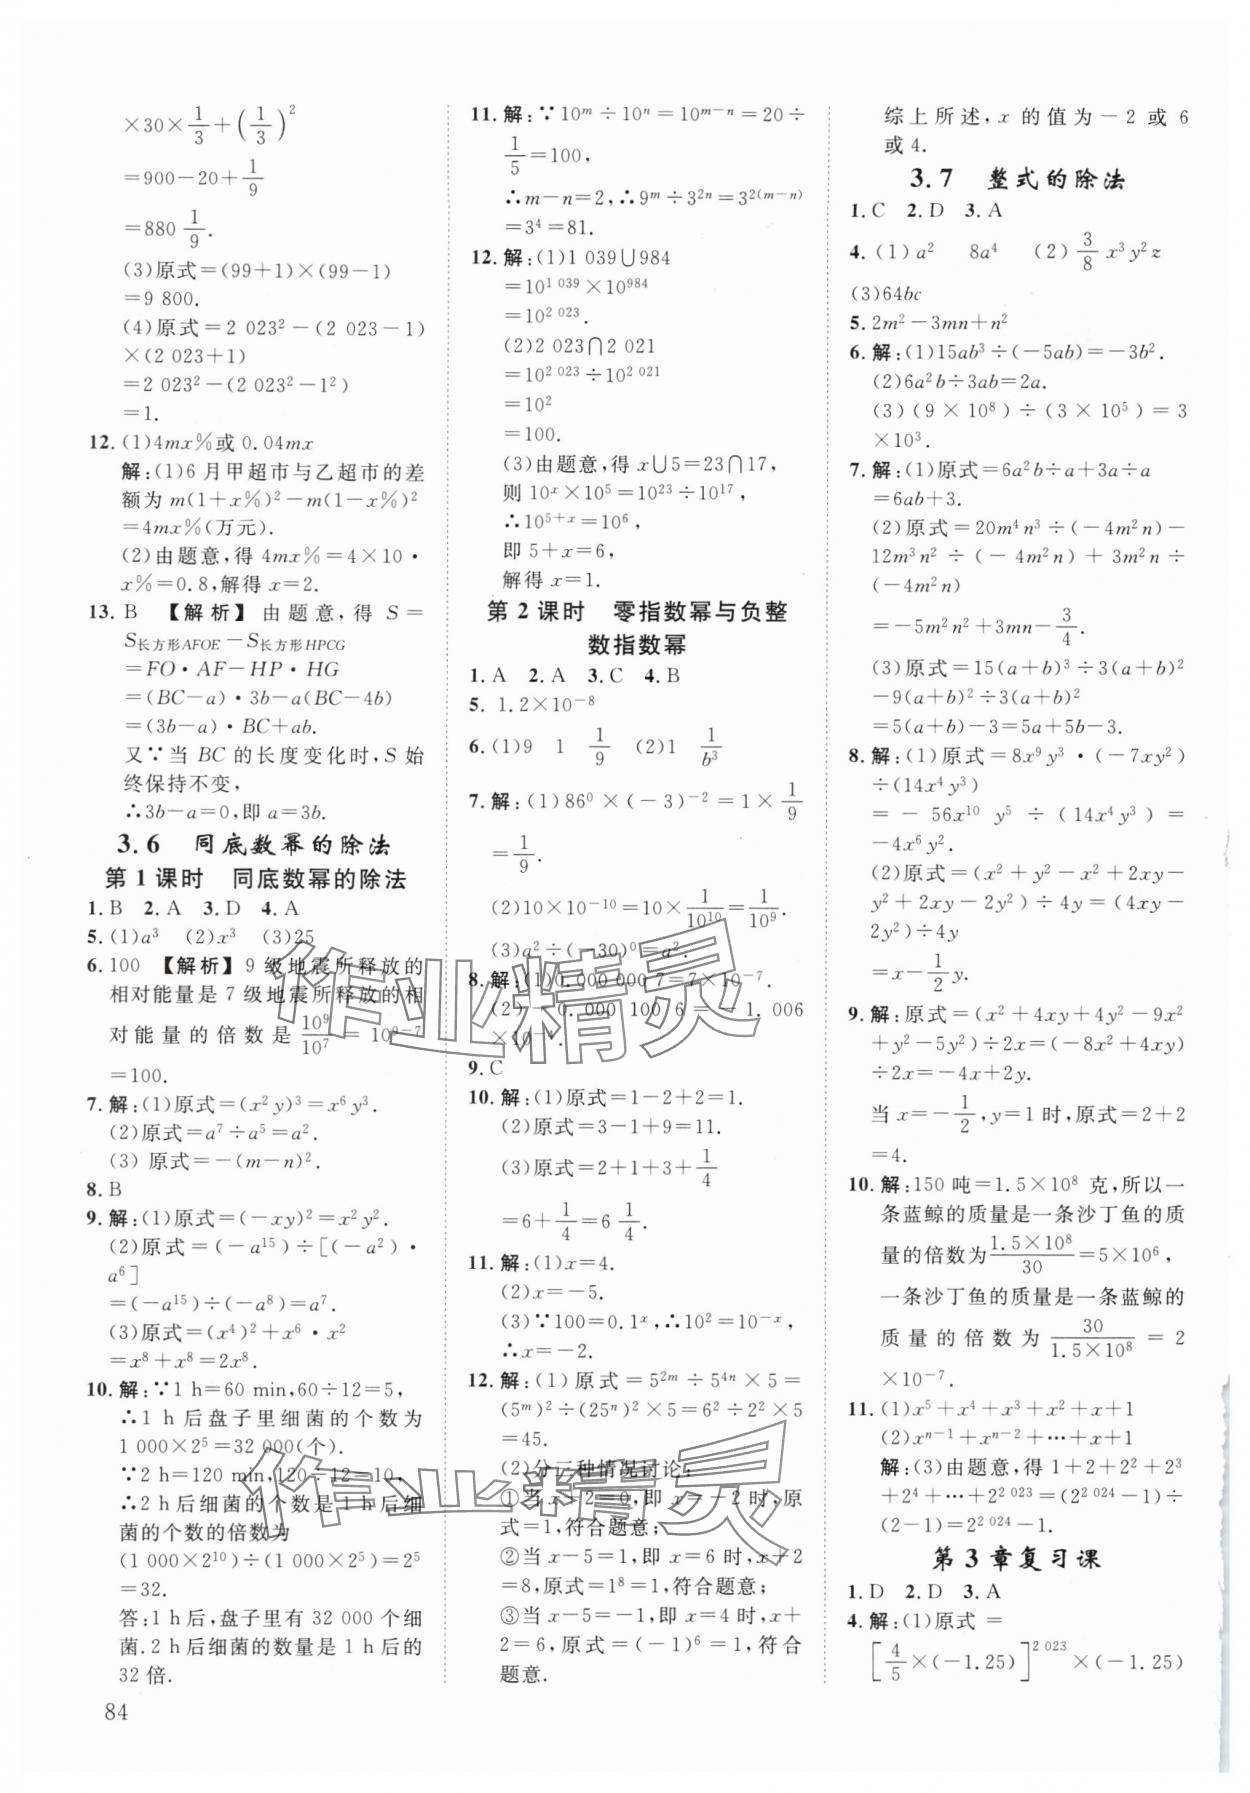 ×30×1/3+(1/3)²
=900-20+1/9
=880 1/9.
(3)原式=(99+1)×(99-1)
=9 800.
(4)原式=2 023²-(2 023-1)
×(2 023+1)
=2 023²-(2 023²-1²)
=1.
12.(1)4mx%或0.04mx
解:(1)6月甲超市与乙超市的差
额为m(1+x%)²-m(1-x%)²
=4mx%(万元).
(2)由题意,得4mx%=4×10·
x%=0.8,解得x=2.
13. B 【解析】由题意,得S=
S长方形AFOE-S长方形HPCG
=FO·AF-HP·HG
=(BC-a)·3b-a(BC-4b)
=(3b-a)·BC+ab.
又∵当BC的长度变化时,S始
终保持不变,
∴3b-a=0,即a=3b.
3.6 同底数幂的除法
第1课时 同底数幂的除法
1. B 2. A 3. D 4. A
5.(1)a³ (2)x³ (3)25
6. 100 【解析】9级地震所释放的
相对能量是7级地震所释放的相
对能量的倍数是10⁹/10⁷=10⁹⁻⁷
=100.
7.解:(1)原式=(x²y)³=x⁶y³.
(2)原式=a⁷÷a⁵=a².
(3) 原式=-(m-n)².
8. B
9.解:(1)原式=(-xy)²=x²y².
(2)原式=(-a¹⁵)÷[(-a²)·
a⁶]
=(-a¹⁵)÷(-a⁸)=a⁷.
(3)原式=(x⁴)²+x⁶·x²
=x⁸+x⁸=2x⁸.
10.解:∵1 h=60 min,60÷12=5,
∴1 h后盘子里细菌的个数为
1 000×2⁵=32 000(个).
∵2 h=120 min,120÷12=10,
∴2 h后细菌的个数是1 h后细
菌的个数的倍数为
(1 000×2¹⁰)÷(1 000×2⁵)
=32.
答:1 h后,盘子里有32 000个细
菌.2 h后细菌的数量是1 h后的
32倍.
84
11.解:∵10ᵐ÷10ⁿ=10ᵐ⁻ⁿ=20÷
1/5=100,
∴m-n=2,∴9ᵐ÷3²ⁿ=3²⁽ᵐ⁻ⁿ⁾
=3⁴=81.
12.解:(1)1 039∪984
=10¹ ⁰³⁹×10⁹⁸⁴
=10² ⁰²³.
(2)2 023∩2 021
=10² ⁰²³÷10² ⁰²¹
=10²
=100.
(3)由题意,得x∪5=23∩17,
则10ˣ×10⁵=10²³÷10¹⁷,
∴10⁵⁺ˣ=10⁶,
即5+x=6,
解得x=1.
第2课时 零指数幂与负整
数指数幂
1. A 2. A 3. C 4. B
5. 1.2×10⁻⁸
6.(1)9 1 1/9 (2)1 1/b³
7.解:(1)86⁰×(-3)⁻²=1×1/9
=1/9.
(2)10×10⁻¹⁰=10×1/10¹⁰=1/10⁹.
(3)a²÷(-30)⁰=a².
8.解:(1)0.000 000 7=7×10⁻⁷.
(2)-0.000 100 6=-1.006
×10⁻⁴.
9. C
10.解:(1)原式=1-2+2=1.
(2)原式=3-1+9=11.
(3)原式=2+1+3+1/4
=6+1/4=6 1/4.
11.解:(1)x=4.
(2)x=-5.
(3)∵100=0.1ˣ,∴10²=10⁻ˣ,
∴x=-2.
12.解:(1)原式=5²ᵐ÷5⁴ⁿ×5=
(5ᵐ)²÷(25ⁿ)²×5=6²÷2²×5
=45.
(2)分三种情况讨论:
①当x+2=0,即x=-2时,原
式=1,符合题意;
②当x-5=1,即x=6时,x+2
=8,原式=1⁸=1,符合题意;
③当x-5=-1,即x=4时,x+
2=6,原式=(-1)⁶=1,符合
题意.
综上所述,x的值为-2或6
或4.
3.7 整式的除法
1. C 2. D 3. A
4.(1)a² 8a⁴ (2)3/8x³y²z
(3)64bc
5. 2m²-3mn+n²
6.解:(1)15ab³÷(-5ab)=-3b².
(2)6a²b÷3ab=2a.
(3)(9×10⁸)÷(3×10⁵)=3
×10³.
7.解:(1)原式=6a²b÷a+3a÷a
=6ab+3.
(2)原式=20m⁴n³÷(-4m²n)-
12m³n²÷(-4m²n)+3m²n÷
(-4m²n)
=-5m²n²+3mn-3/4.
(3)原式=15(a+b)³÷3(a+b)²
-9(a+b)²÷3(a+b)²
=5(a+b)-3=5a+5b-3.
8.解:(1)原式=8x⁹y³·(-7xy²)
÷(14x⁴y³)
=-56x¹⁰y⁵÷(14x⁴y³)=
-4x⁶y².
(2)原式=(x²+y²-x²+2xy-
y²+2xy-2y²)÷4y=(4xy-
2y²)÷4y
=x-1/2y.
9.解:原式=(x²+4xy+4y²-9x²
+y²-5y²)÷2x=(-8x²+4xy)
÷2x=-4x+2y.
当x=-1/2,y=1时,原式=2+2
=4.
10.解:150吨=1.5×10⁸克,所以一
条蓝鲸的质量是一条沙丁鱼的质
量的倍数为1.5×10⁸/30=5×10⁶,
一条沙丁鱼的质量是一条蓝鲸的
质量的倍数为30/1.5×10⁸=2
×10⁻⁷.
11.(1)x⁵+x⁴+x³+x²+x+1
(2)xⁿ⁻¹+xⁿ⁻²+…+x+1
解:(3)由题意,得1+2+2²+2³
+2⁴+…+2² ⁰²³=(2² ⁰²⁴-1)÷
(2-1)=2² ⁰²⁴-1.
第3章复习课
1. D 2. D 3. A
4.解:(1)原式=
[4/5×(-1.25)]² ⁰²³×(-1.25)
作业精灵
作业精灵